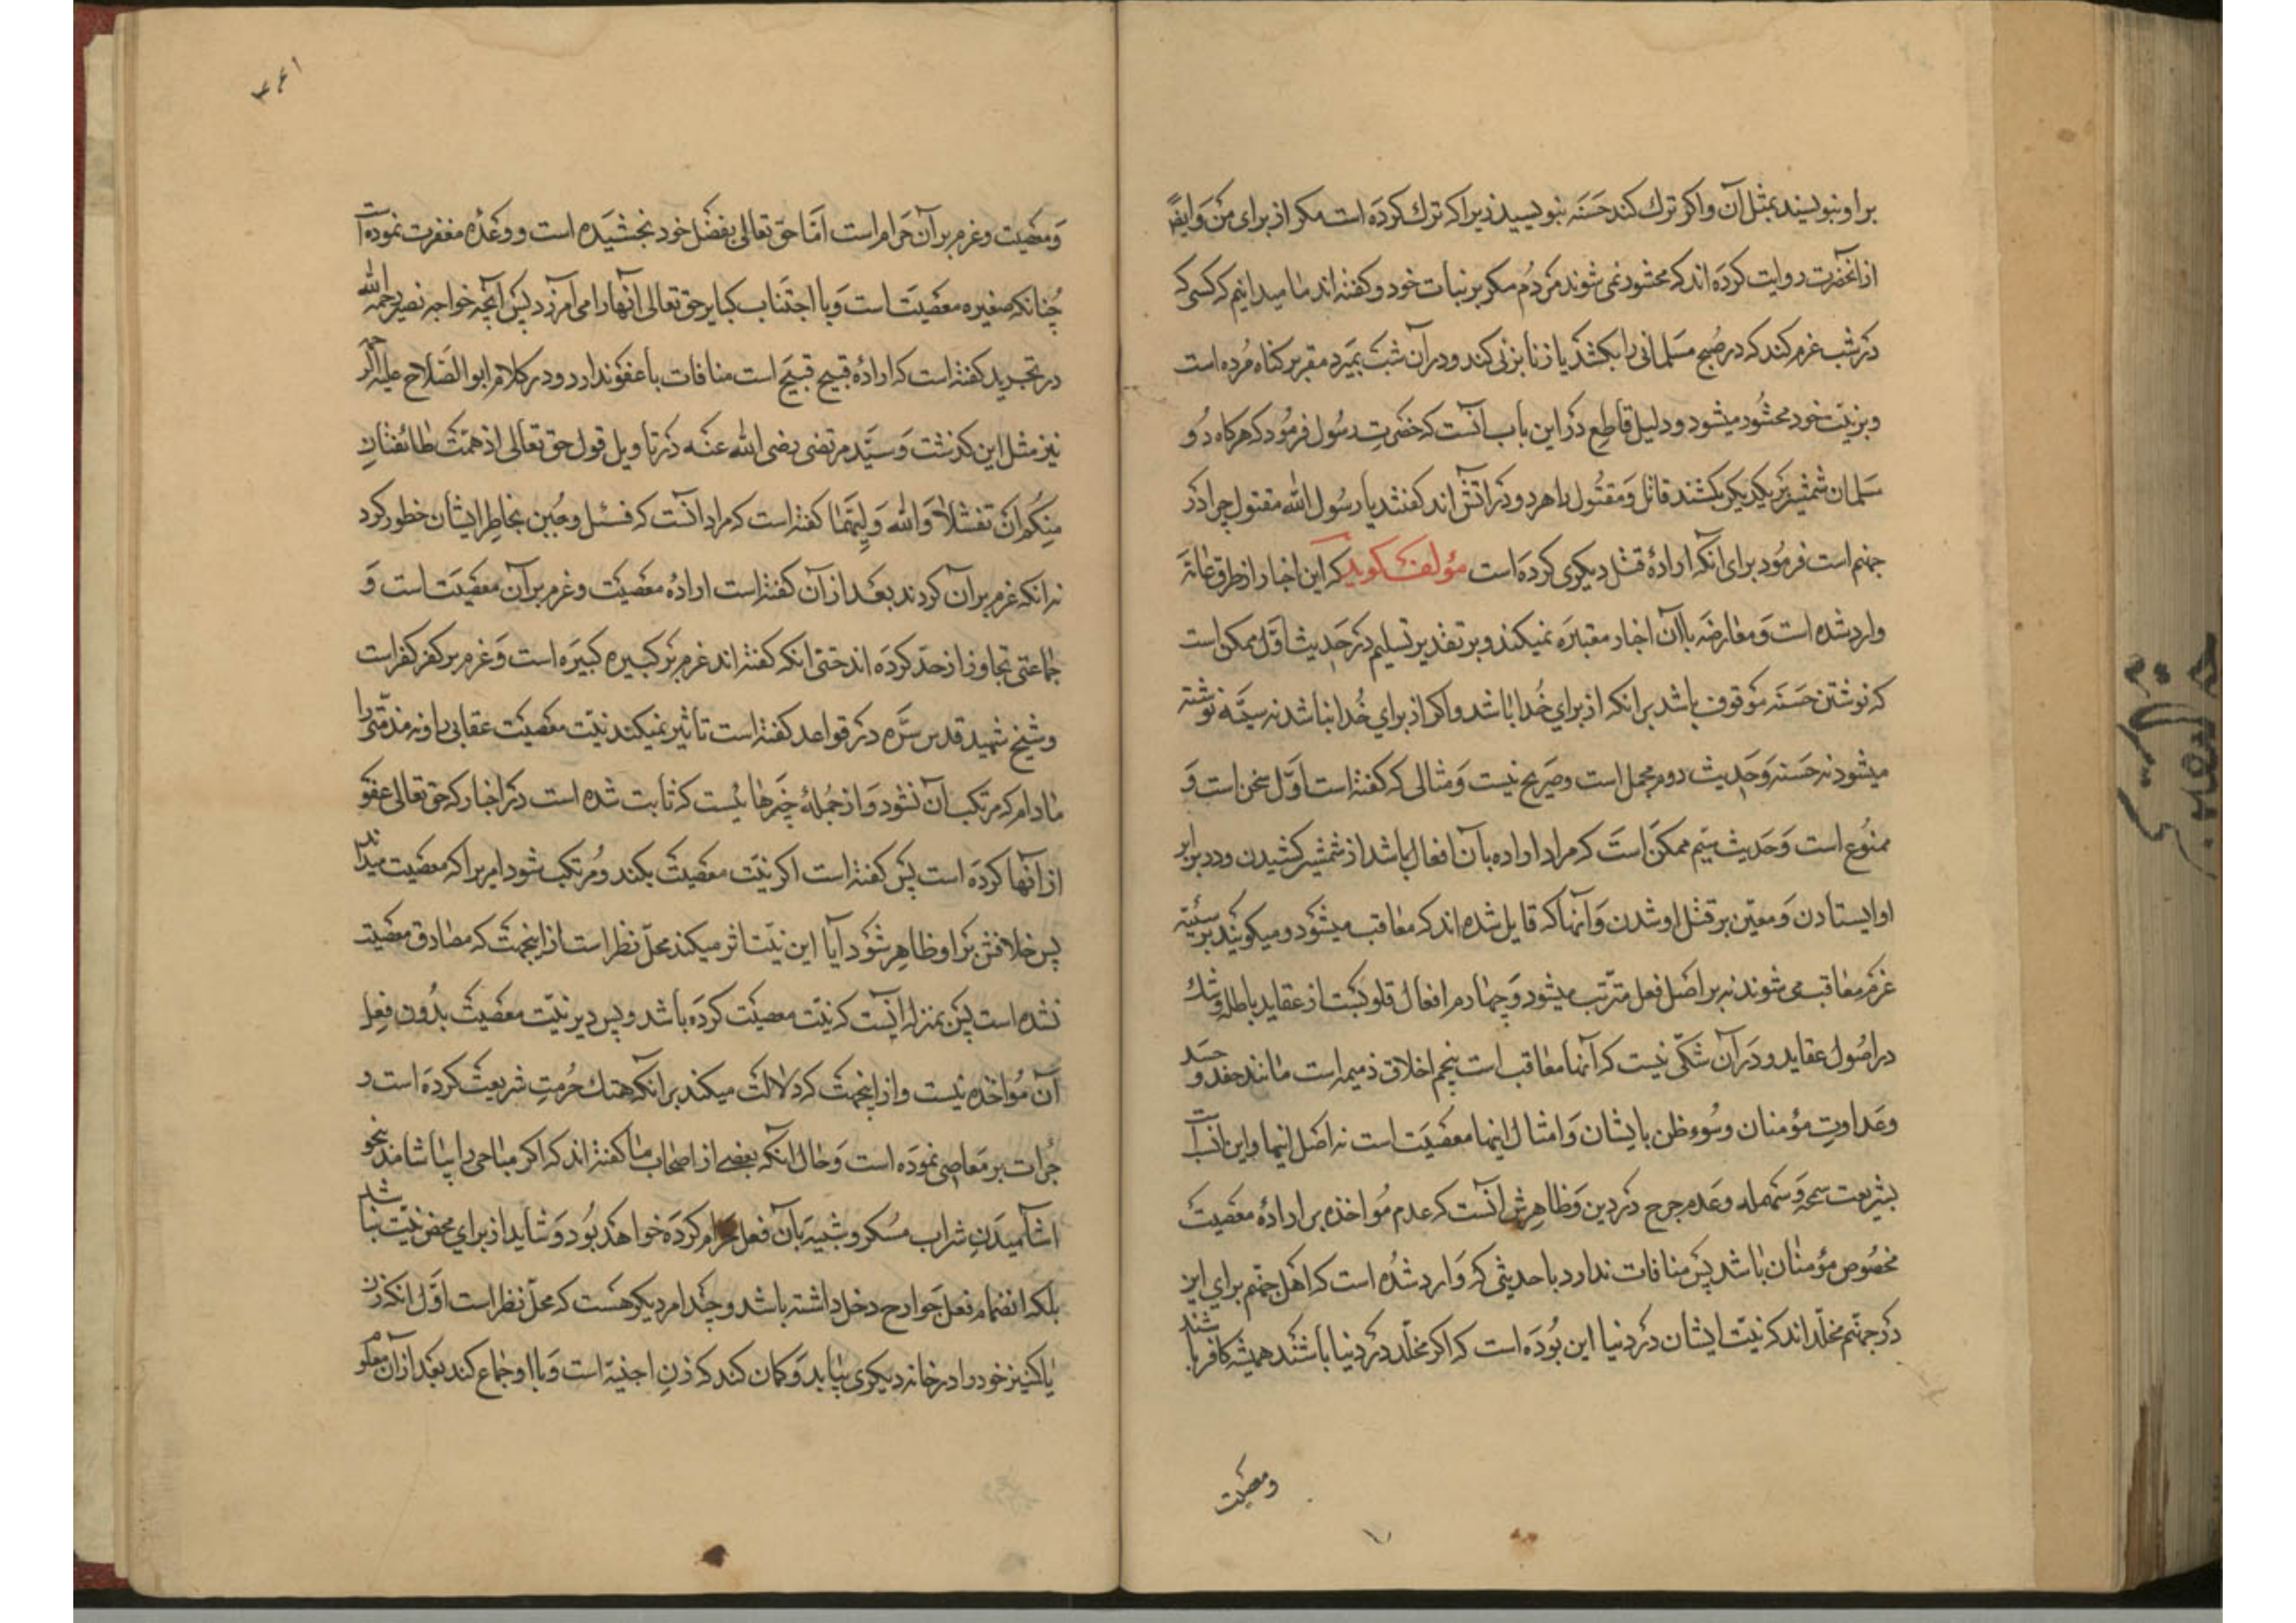 براو بنویسند بمثل آن و اکر ترك کند حَسَنَه بنویسید زیرا که ترك کردَه است مکر از برای من وَ ایضًا
از انحضرت روایت کردَه اند که محشود نمی شوند مردُم مکر بر نیات خود و کفته اند ما میدانیم که کسی که
دَر شب عزم کند که در صُبح مسَلمانی را بکشد یا زنا بزنی کند و در آن شب بمَیرد مقر بر کناه مُرده است
و بر نیّت خود محشُود میشود و دلیل قاطع دَر این باب آنست که حضرت رسُول فرمُود که هرکاه دُو
مسَلمان شمشیر بَر یکدیکر بکشند قاتل وَ مقتُول را هر دو دَر آتش اند کفتند یا رسُول الله مقتول چرا دَر
جهنم است فرمُود برای آنکه ارادهٔ قتل دیکری کردَه است مؤلف کوید که این اخبار از طرق عامّه
وارد شده است وَ معارضَه با آن اخبار معتبَره نمیکند و بر تقدیر تسلیم دَر حَدیث اوّل ممکن است
که نوشتن حَسَنَه موقوف باشد بر انکه از برای خُدا باشد و اکر از برای خُدا نباشد نه سیّئه نوشته
میشود نه حَسَنه وَ حَدیث دوم مجمل است و صَریح نیست وَ مثالی که کفته است اوّل سخن است وَ
ممنُوع است وَ حَدیث سیّم ممکن است که مراد اراده بآن افعال باشد از شمشیر کشیدن و در برابر
او ایستادن وَ معیّن بر قتل او شدن وَ آنها که قایل شده اند که معاقب میشود و میکویند بر سیّئه
عزم معاقب می شوند نه بر اصل فعل مترتب میشود وَ چهارم افعال قلوبست از عقاید باطله وَ شك
در اصُول عقاید و دَر آن شکّی نیست که آنها معاقب است پنجم اخلاق ذمیمه است مانند حقد و حسَد
وعَداوتِ مؤمنان و سُوء ظن بایشان وَ امثال اینها معصیَت است نه اصل اینها و این انسبست
بشریعت سمحهٔ وَ سَهله وعَدم حرج دَر دین وَ ظاهرش آنست که عدم مُواخذه بر ارادهٔ معصیت
مخصُوص مؤمنان باشد پس منافات ندارد با حدیثی که وَارد شُده است که اهل جهنّم برای این
دَر جهنّم مخلّد اند که نیّت ایشان دَر دنیا این بُودَه است که اکر مخلّد دَر دنیا باشند همیشه کافر باشند
ومعصیت
وَ معصیت و عزم بر آن حَرام است امّا حق تعالی بفضل خود بخشیَده است و وعدهٔ مغفرت نموده است
چُنانکه صغیره معصیَت است وَ با اجتناب کبایر حق تعالی آنها را می آمرزد پس آنچه خواجه نصیر رحمه الله
در تجرید کفته است که ارادهٔ قبیح قبیح است منافات با عفو ندارد و در کلام ابو الصّلاح علیه الرحمه
نیز مثل این کذشت وَ سیّد مرتضی رضی الله عنه دَر تاویل قول حق تعالی اذ همّت طائفتانِ
مِنکُم اَن تفشلا وَالله وَلِیّهُما کفته است که مراد آنست که فشل و جُبن بخاطر ایشان خطور کرد
نه انکه عزم بر آن کردند بعَد از آن کفته است ارادهٔ معصیَت و عزم بر آن معصیَت است وَ
جماعتی تجاوز از حدّ کردَه اند حتی انکه کفته اند عزم بَر کبیره کبیرَه است وَ عزم بر کفر کفر است
و شیخ شهید قدس سرّه دَر قواعد کفته است تأثیر نمیکند نیّت معصیَت عقابی را و نه مذمّتی را
مادام که مرتکب آن نشود وَ از جُملهٔ چیَزهائیست که ثابت شده است دَر اخبار که حق تعالی عفو
از آنها کردَه است پس کفته است اکر نیّت معصیَت بکند و مُرتکب شود امر یرا که معصیت میداند
پس خلافش بَر او ظاهر شوَد آیا این نیّت اثر میکند محلّ نظر است از اینجهت که مصادق معصیت
نشده است پس بمنزله اینست که نیّت معصیَت کردَه باشد و بس و بر نیّت معصیت بدُون فِعل
آن مُواخذه نیست و از اینجهت که دَلالت میکند بر انکه هتك حُرمتِ شریعت کردَه است و
جرأت بر مَعاصی نمودَه است وَ حال انکه بعضے از اصحاب ما کفته اند که اکر مباحی را بیاشامد بنحو
اشامیدَن شراب مسُکر و شبیَه بآن فعل حرام کردَه خواهد بُود وَ شاید از برای محض نیّت نباشد
بلکه انضمام فعل جَوارح دخل داشته باشد و چند امر دیکر هست که محلّ نظر است اوّل انکه زن
یا کنیز خود را در خانه دیکری بیابد وَ کمان کند که زن اجنبیّه است وَ با او جماع کند بعَد از آن معلوم